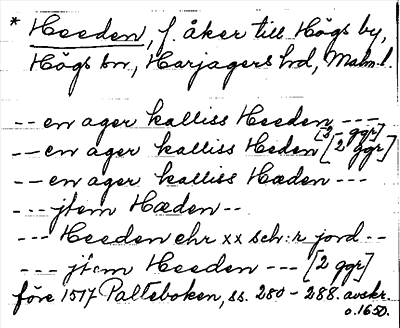 * Heeden, f. åker till Högs by,
Högs sn, Harjagers hd, Malm.l.
-- en ager kalliss Heeden ---
[2 ggr]
-- en ager kalliss Heden [2 ggr]
-- en ager kalliss Hæden ---
--- jtem Hæden --
--- Heeden ehr xx sch:r jord --
--- jtem Heeden --- [2 ggr]
före 1517 Palteboken, ss. 280-288. avskr.
o. 1650.